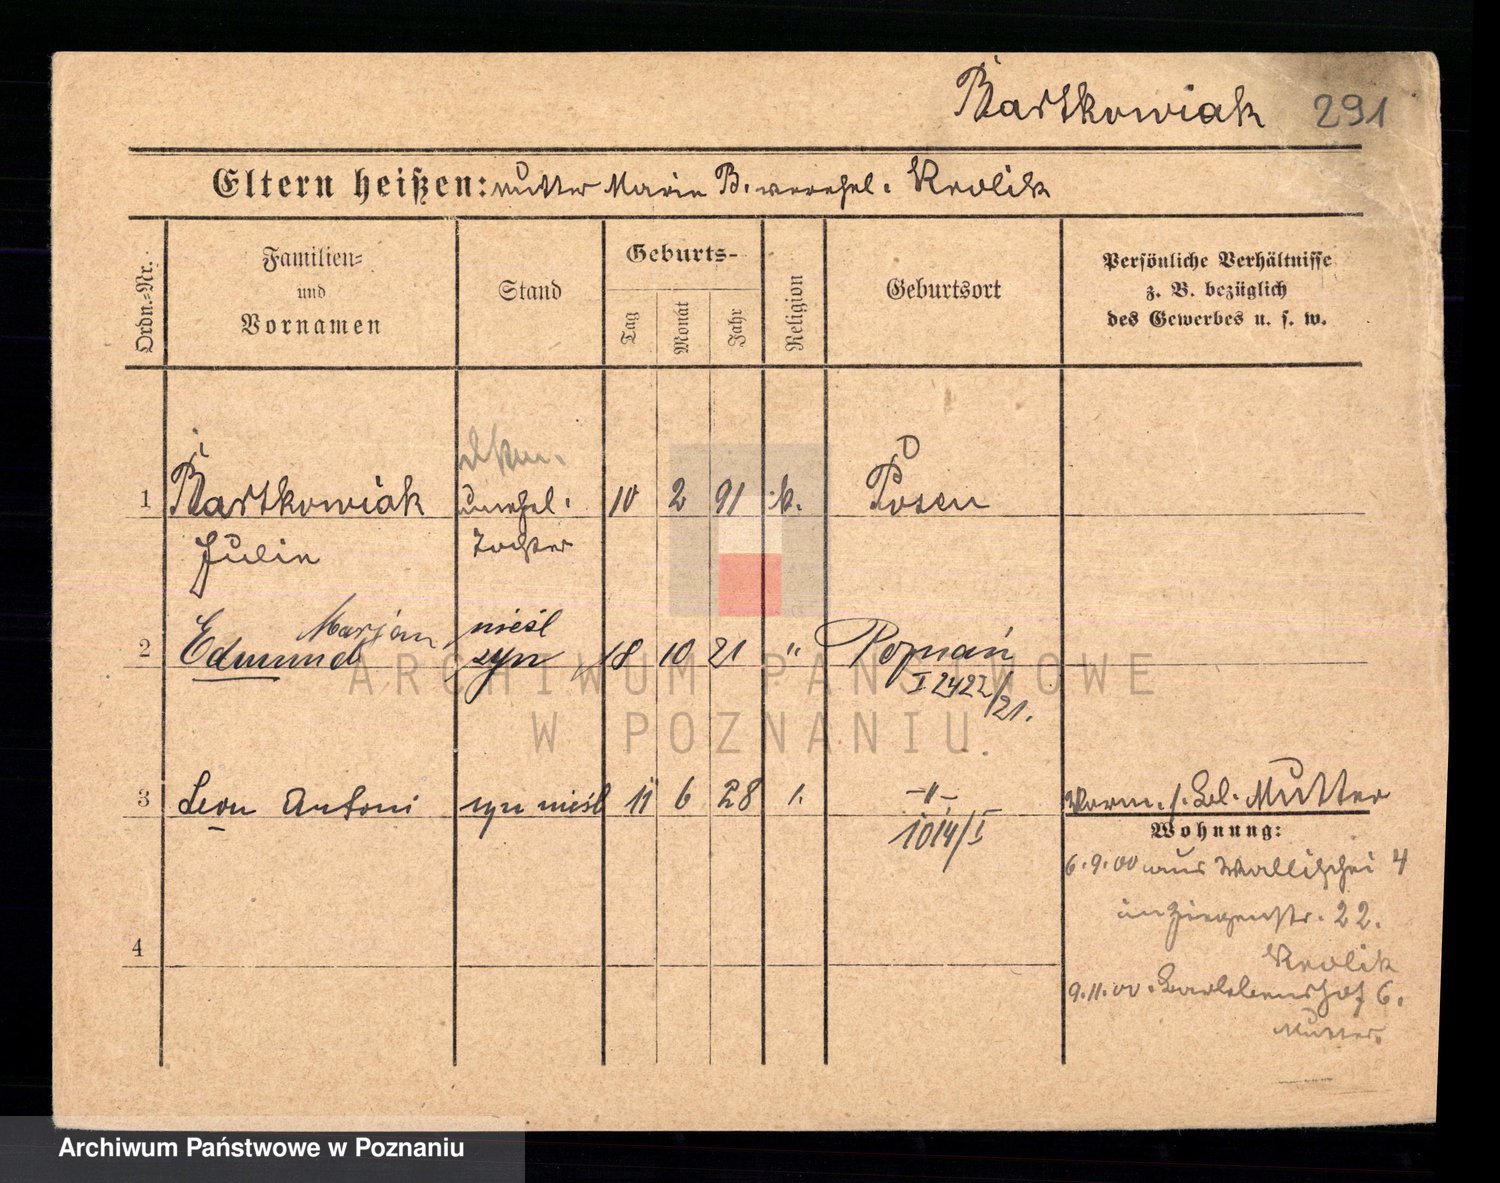 Bartkowiak 291
Eltern heißen: Mutter Marie B. verehel. Krolik
Ordn.-Nr.
Familien-
und
Vornamen
Stand
Geburts-
Tag
Monat
Jahr
Religion
Geburtsort
Persönliche Verhältnisse
z. B. bezüglich
des Gewerbes u. s. w.
1 Bartkowiak unehel. 10 2 91 k. Posen
Julie Tochter
Marjan nieśl
2 Edmund syn 18 10 21 " Poznań
I 2422/21.
3 Leon Antoni syn nieśl 11 6 28 -"- Vorm. Mutter
1014/I
Wohnung:
6.9.00 aus Wallischei 4
in Ziegenstr. 22.
Krolik
9.11.00. Bartlebenshof 6.
Mutter.
4
ARCHIWUM PAŃSTWOWE
W POZNANIU
Archiwum Państwowe w Poznaniu